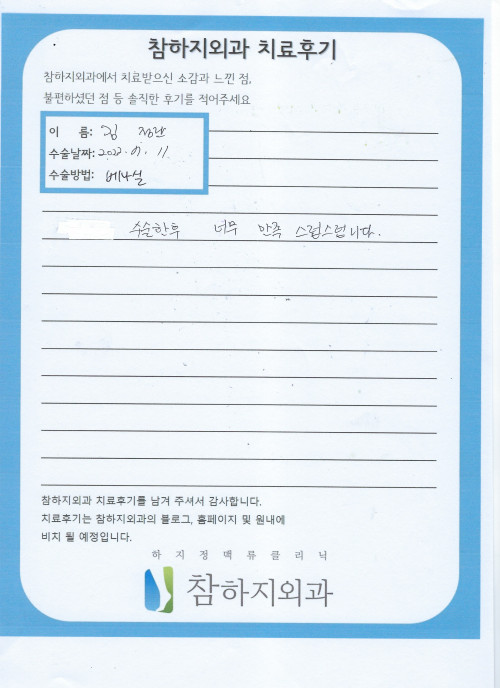 참하지외과 치료후기
참하지외과에서 치료받으신 소감과 느낀 점,
불편하셨던 점 등 솔직한 후기를 적어주세요
이 름: 김
수술날짜: 2022. 01. 11
수술방법: 베나실
수술한후 너무 만족 스럽스럽니다.
참하지외과 치료후기를 남겨 주셔서 감사합니다.
치료후기는 참하지외과의 블로그, 홈페이지 및 원내에
비치 될 예정입니다.
하지정맥류클리닉
참하지외과